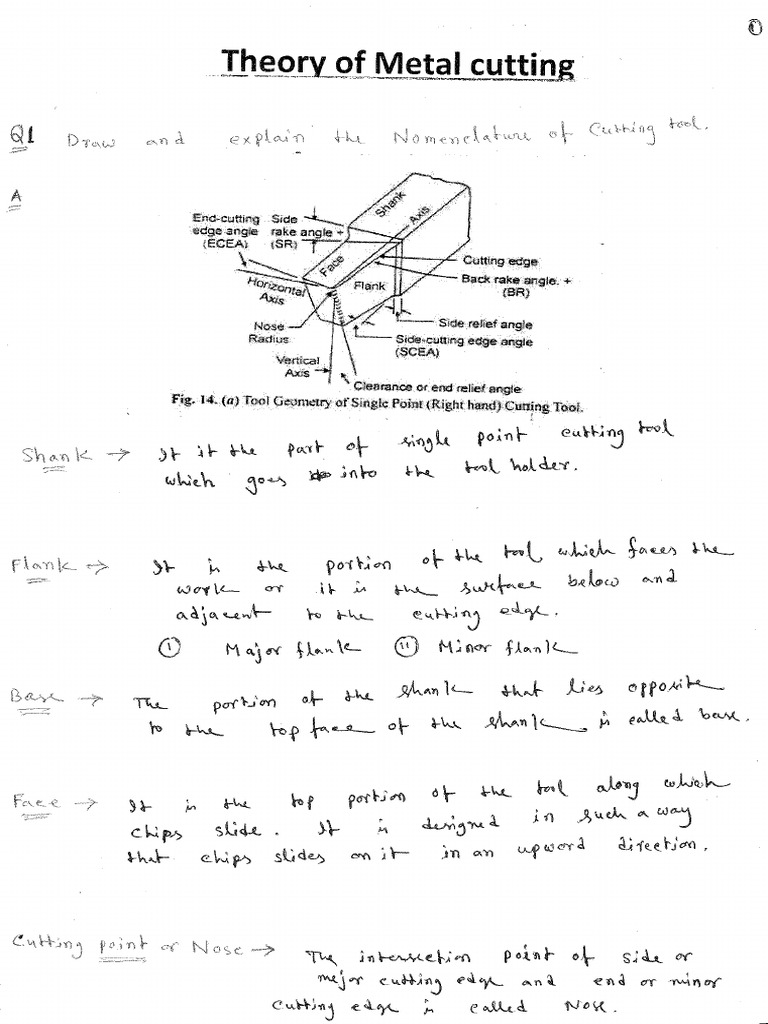 ①
Theory of Metal cutting
Q1 Draw and explain the Nomenclature of Cutting tool.
A
Shank
Axis
End-cutting edge angle (ECEA)
Side rake angle + (SR)
Face
Cutting edge
Back rake angle. + (BR)
Flank
Horizontal Axis
Nose Radius
Side relief angle
Side-cutting edge angle (SCEA)
Vertical Axis
Clearance or end relief angle
Fig. 14. (a) Tool Geometry of Single Point (Right hand) Cutting Tool.
Shank → It it the part of single point cutting tool
which goes into the tool holder.
Flank → It is the portion of the tool which faces the
work or it is the surface below and
adjacent to the cutting edge.
(i) Major flank (ii) Minor flank
Base → The portion of the shank that lies opposite
to the top face of the shank, is called base.
Face → It is the top portion of the tool along which
chips slide. It is designed in such a way
that chips slides on it in an upword direction.
Cutting point or Nose → The intersection point of side or
mejor cutting edge and end or minor
cutting edge is called Nose.